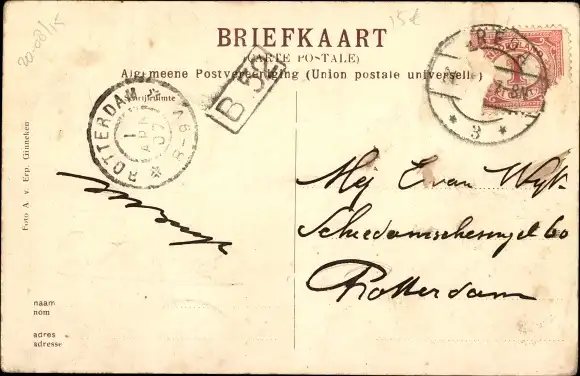 20-08/15
15€
BRIEFKAART
(CARTE POSTALE)
Algemeene Postvereeniging (Union postale universelle)
B.52
ROTTERDAM
1 APR 07
8-9V
BRE
3
Mej E van Wijk
Schiedamschesingel 60
Rotterdam
Foto A v. Erp. Ginneken
naam
nom
adres
adresse